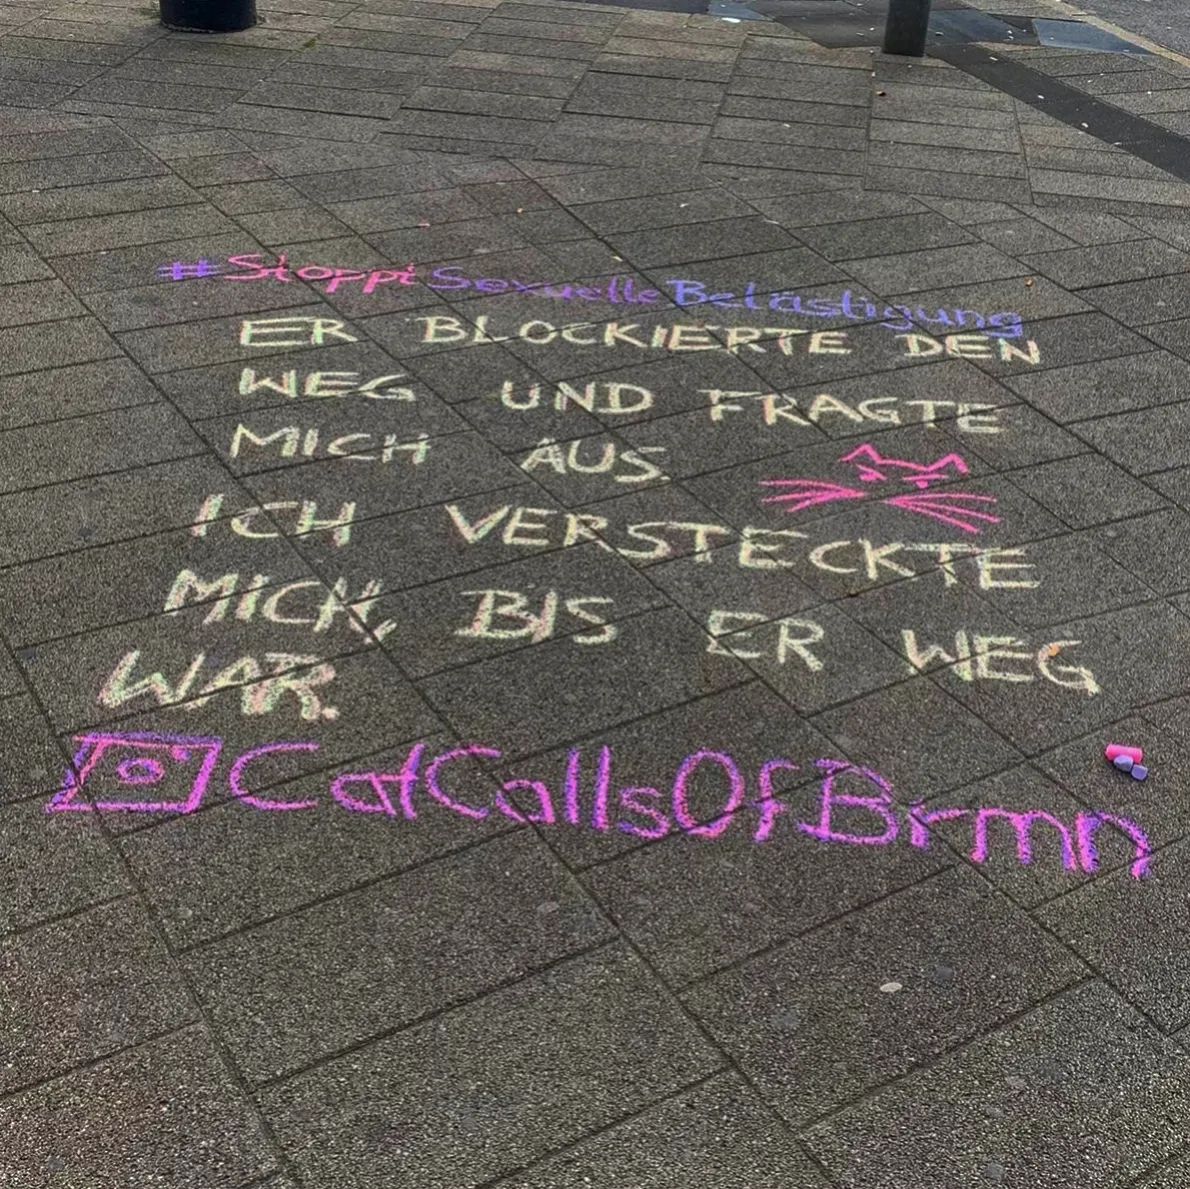 #StopptSexuelleBelästigung
ER BLOCKIERTE DEN
WEG UND FRAGTE
MICH AUS.
ICH VERSTECKTE
MICH, BIS ER WEG
WAR.
CatCallsOfBrmn